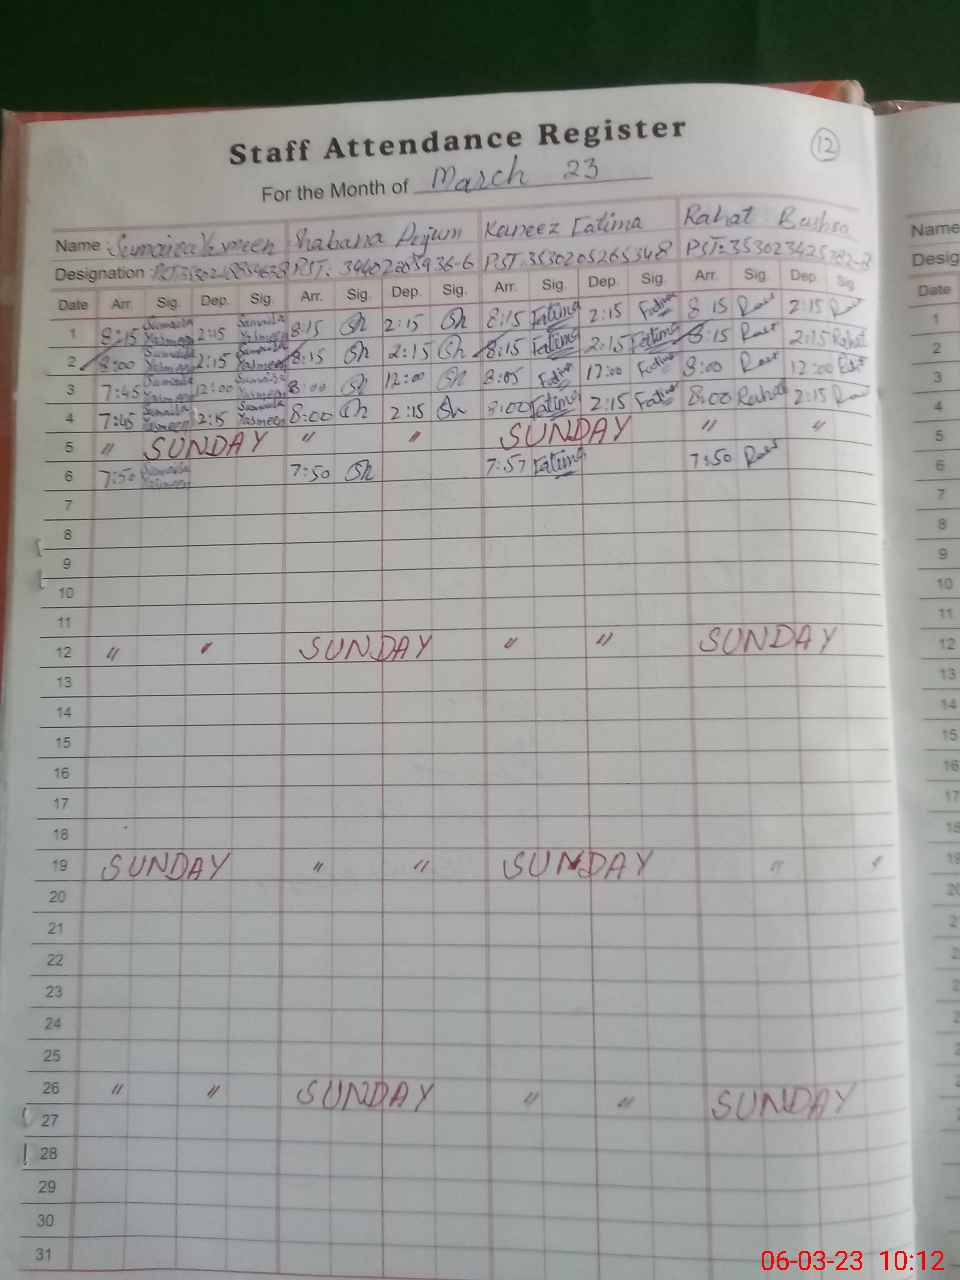 Staff Attendance Register
12
For the Month of March 23
Name Yasmeen Shabana Kaneez Fatima Rahat Bushra
Designation PST: PST: PST:
Date Arr. Sig. Dep. Sig. Arr. Sig. Dep. Sig. Arr. Sig. Dep. Sig. Arr. Sig. Dep. Sig.
1 8:15 Yasmeen 2:15 Yasmeen 8:15 Sh 2:15 Sh 8:15 Fatima 2:15 Fatima 8 15 2:15
2 8:00 Yasmeen 2:15 Yasmeen 8:15 Sh 2:15 Sh 8:15 Fatima 2:15 Fatima 8:15 2:15 Rahat
3 7:45 12:00 8:00 Sh 12:00 Sh 8:05 Fatima 12:00 8:00 12:00
4 7:45 Yasmeen 2:15 Yasmeen 8:00 Sh 2:15 Sh 8:00 Fatima 2:15 Fatima 8:00 Rahat 2:15
5 " SUNDAY " " SUNDAY " "
6 7:50 7:50 Sh 7:57 Fatima 7:50
7
8
9
10
11
12 " " SUNDAY " " SUNDAY
13
14
15
16
17
18
19 SUNDAY " " SUNDAY " "
20
21
22
23
24
25
26 " " SUNDAY " " SUNDAY
27
28
29
30
31
Name
Desig
Date
1
2
3
4
5
6
7
8
9
10
11
12
13
14
15
16
17
18
06-03-23 10:12